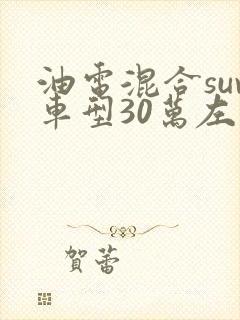 油電混合suv
車型30萬左
賀蕾